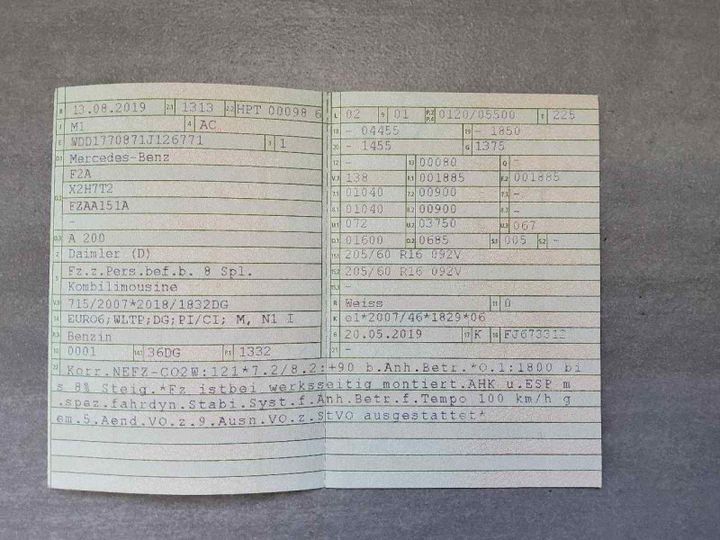 B 13.08.2019 2.1 1313 2.2 HPT 00098 6
J M1 4 AC
E WDD1770871J126771 3 1
D.1 Mercedes-Benz
F2A
D.2 X2H7T2
FZAA151A
-
D.3 A 200
2 Daimler (D)
5 Fz.z.Pers.bef.b. 8 Spl.
Kombilimousine
V.9 715/2007*2018/1832DG
14 EURO6;WLTP;DG;PI/CI; M, N1 I
P.3 Benzin
10 0001 14.1 36DG P.1 1332
L 02 9 01 P.2 P.4 0120/05500 T 225
18 - 04455 19 - 1850
20 - 1455 G 1375
12 - 13 00080 Q -
V.7 138 F.1 001885 F.2 001885
7.1 01040 7.2 00900 7.3 -
8.1 01040 8.2 00900 8.3 -
U.1 072 U.2 03750 U.3 067
O.1 01600 O.2 0685 S.1 005 S.2 -
15.1 205/60 R16 092V
15.2 205/60 R16 092V
15.3 -
R Weiss 11 0
K e1*2007/46*1829*06
6 20.05.2019 17 K 16 FJ673312
21 -
22 Korr.NEFZ-CO2W:121*7.2/8.2:+90 b.Anh.Betr.*O.1:1800 bi
s 8% Steig.*Fz istbei werksseitig montiert.AHK u.ESP m
.spez.fahrdyn.Stabi.Syst.f.Anh.Betr.f.Tempo 100 km/h g
em.5.Aend.VO.z.9.Ausn.VO.z.StVO ausgestattet*